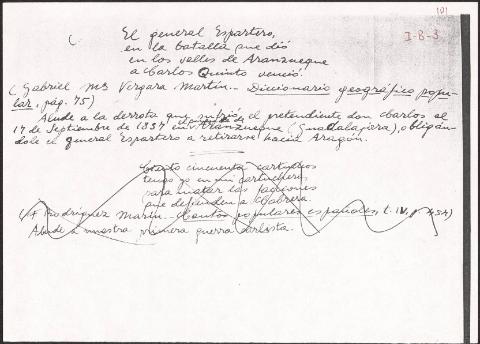 101
I-8-3
El general Espartero,
en la batalla que dió
en los valles de Aranzueque
a Carlos Quinto venció.
(Gabriel Mª Vergara Martín.- Diccionario geográfico popu-
lar, pág. 75)
Alude a la derrota que sufrió el pretendiente don Carlos el
17 de Septiembre de 1837 en Aranzueque (Guadalajara), obligán-
dole el general Espartero a retirarse hacia Aragón.
cincuenta cartuchos
tengo yo en mi cartuchera
para matar las facciones
que defienden a Cabrera.
(F. Rodríguez Marín.- Cantos populares españoles, t. IV, p. 454)
Alude a nuestra primera guerra carlista.